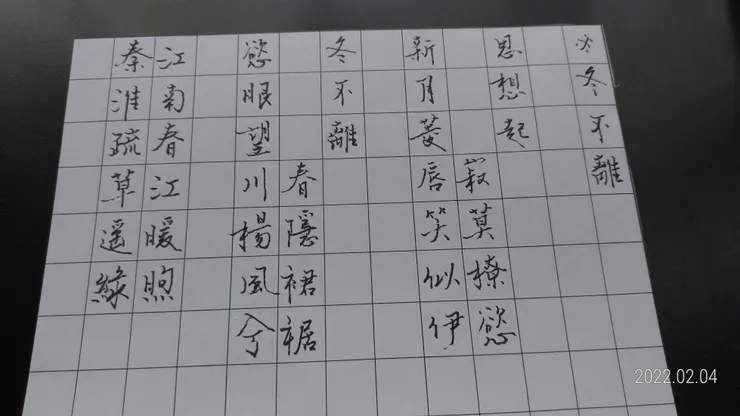 ※冬不離
思想起
寂莫撩慾
新月菱唇笑似伊
冬不離
春隱裙裾
慾眼望川楊風兮
江南春江暖煦
秦淮疏草遙綠
2022.02.04